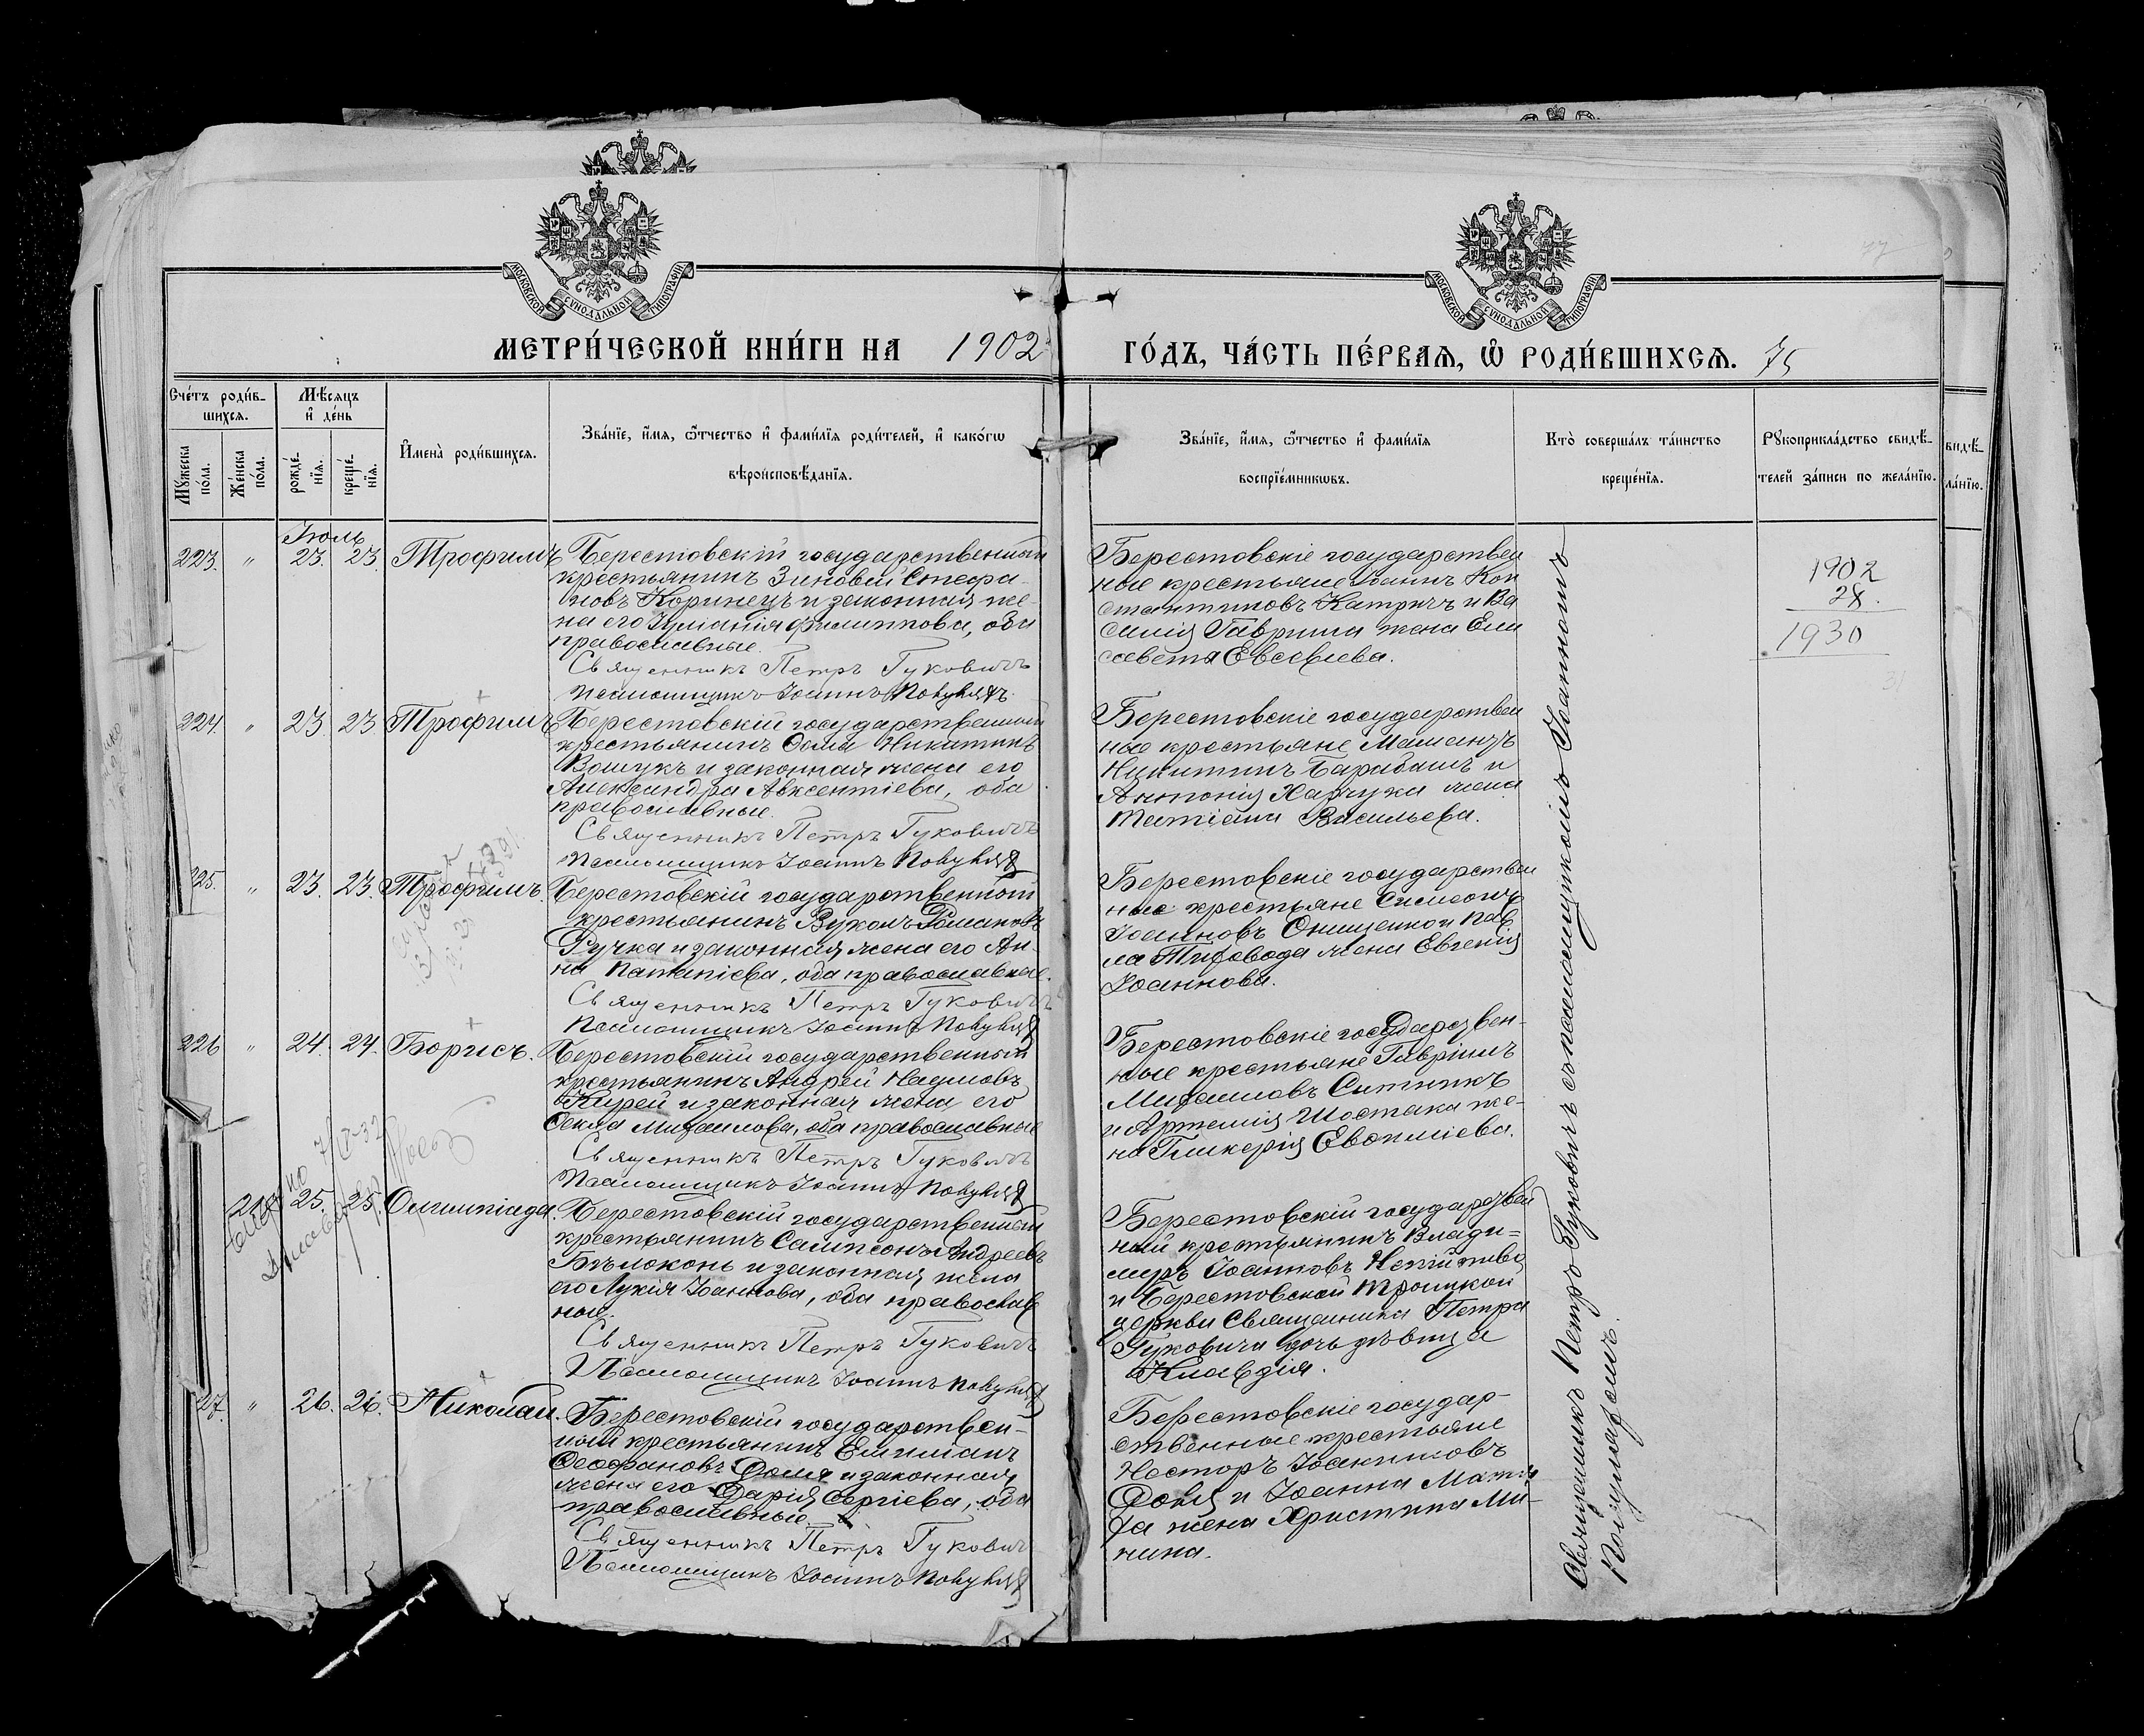 МОСКОВСКОЙ СѴНОДАЛЬНОЙ ТИПОГРАФІИ
МОСКОВСКОЙ СѴНОДАЛЬНОЙ ТИПОГРАФІИ
МЕТРИ́ЧЕСКОЙ КНИ́ГИ НА 1902
ГО́ДЪ, ЧА́СТЬ ПЕ́РВАѦ, Ѽ РОДИ́ВШИХСѦ. 75
Сче́тъ роди́в-
шихсѧ.
Мꙋ́жеска
по́ла.
Же́нска
по́ла.
Мѣ́сѧцъ
и҆ де́нь
рожде́-
нїѧ.
креще́-
нїѧ.
И҆мена̀ роди́вшихсѧ.
Зва́нїе, и҆́мѧ, ѻ҆́тчество и҆ фами́лїѧ роди́телей, и҆ како́гѡ
вѣроисповѣ́данїѧ.
Зва́нїе, и҆́мѧ, ѻ҆́тчество и҆ фами́лїѧ
воспрїе́мникѡвъ.
Кто̀ соверша́лъ та́инство
креще́нїѧ.
Рꙋкоприкла́дство свидѣ́-
телей за́писи по жела́нїю.
Іюль
223. " 23. 23. Трофимъ
Берестовскій государственный
крестьянинъ Зиновій Стефа-
новъ Коринецъ и законная же-
на его Іуліанія Филиппова, оба
православные.
Священникъ Петръ Гуковичъ
Псаломщикъ Іоаннъ
Берестовскіе государствен
ные крестьяне Іоаннъ Кон
стантиновъ Катричъ и Ва
силія Гавриша жена Ели
савета Евсевіева.
1902
28.
1930
224. " 23. 23 Трофимъ
Берестовскій государственный
крестьянинъ Ѳома Никитинъ
Вощукъ и законная жена его
Александра Авксентіева, оба
православные.
Священникъ Петръ Гуковичъ
Псаломщикъ Іоаннъ
Берестовскіе государствен
ные крестьяне
Никитинъ Барабашъ и
Антонія Харчука жена
Татіана Васильева.
225. " 23. 23. Трофимъ.
Берестовскій государственный
крестьянинъ Вуколъ Романовъ
Ручка и законная жена его Ан-
на Патапіева, оба православные.
Священникъ Петръ Гуковичъ
Псаломщикъ Іоаннъ
Берестовскіе государствен
ные крестьяне Симеонъ
Іоанновъ Онищенко и Пав
ла жена Евгенія
Іоаннова.
226 " 24. 24. Борисъ.
Берестовскій государственный
крестьянинъ Андрей Наумовъ
Кирей и законная жена его
Ѳекла Михаилова, оба православные
Священникъ Петръ Гуковичъ
Псаломщикъ Іоаннъ
Берестовскіе государствен-
ные крестьяне Гавріилъ
Михаиловъ Ситникъ
и Артемія Шостака же-
на Гликерія Евфиміева.
25. 25. Олимпіада.
Берестовскій государственный
крестьянинъ Сампсонъ Андреевъ
Бѣлоконь и законная жена
его Лукія Іоаннова, оба православ
ные.
Священникъ Петръ Гуковичъ
Псаломщикъ Іоаннъ
Берестовскій государствен
ный крестьянинъ Влади=
миръ Іоанновъ
и Берестовской Троицкой
церкви Священника Петра
Гуковича дочь дѣвица
Клавдія.
27. " 26. 26. Николай.
Берестовскій государствен-
ный крестьянинъ Емиліанъ
Ѳеофановъ Доля и законная
жена его Дарія Сергіева, оба
православные.
Священникъ Петръ Гуковичъ
Псаломщикъ Іоаннъ
Берестовскіе государ-
ственные крестьяне
Несторъ Іоакимовъ
Доля и Іоанна
жена Христина Ми-
нина.
Священникъ Петръ Гуковичъ съ псаломщикомъ Іоанномъ